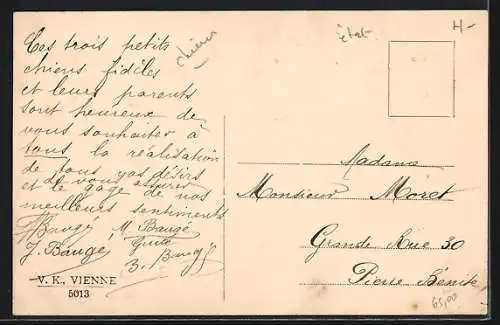 Ces trois petits
chiens fidèles
et leurs parents
sont heureux de
vous souhaiter à
tous la réalisation
de tous vos désirs
et de vous assurer
et le gage de nos
meilleurs sentiments
Baugé M Baugé
J. Baugé Guite
B. Baugé
V. K., VIENNE
5013
chiens
État
H-
Madame
Monsieur Moret
Grande Rue 30
Pierre Bénite
65,00